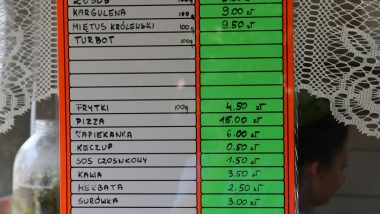 ŁOSOŚ 100g
KARGULENA 100g 9.00 zł
MIĘTUS KRÓLEWSKI 100g 9.50 zł
TURBOT 100g
FRYTKI 100g 4.50 zł
PIZZA 15.00 zł
ZAPIEKANKA 6.00 zł
KECZUP 0.50 zł
SOS CZOSNKOWY 1.50 zł
KAWA 3.50 zł
HERBATA 2.50 zł
SURÓWKA 3.00 zł